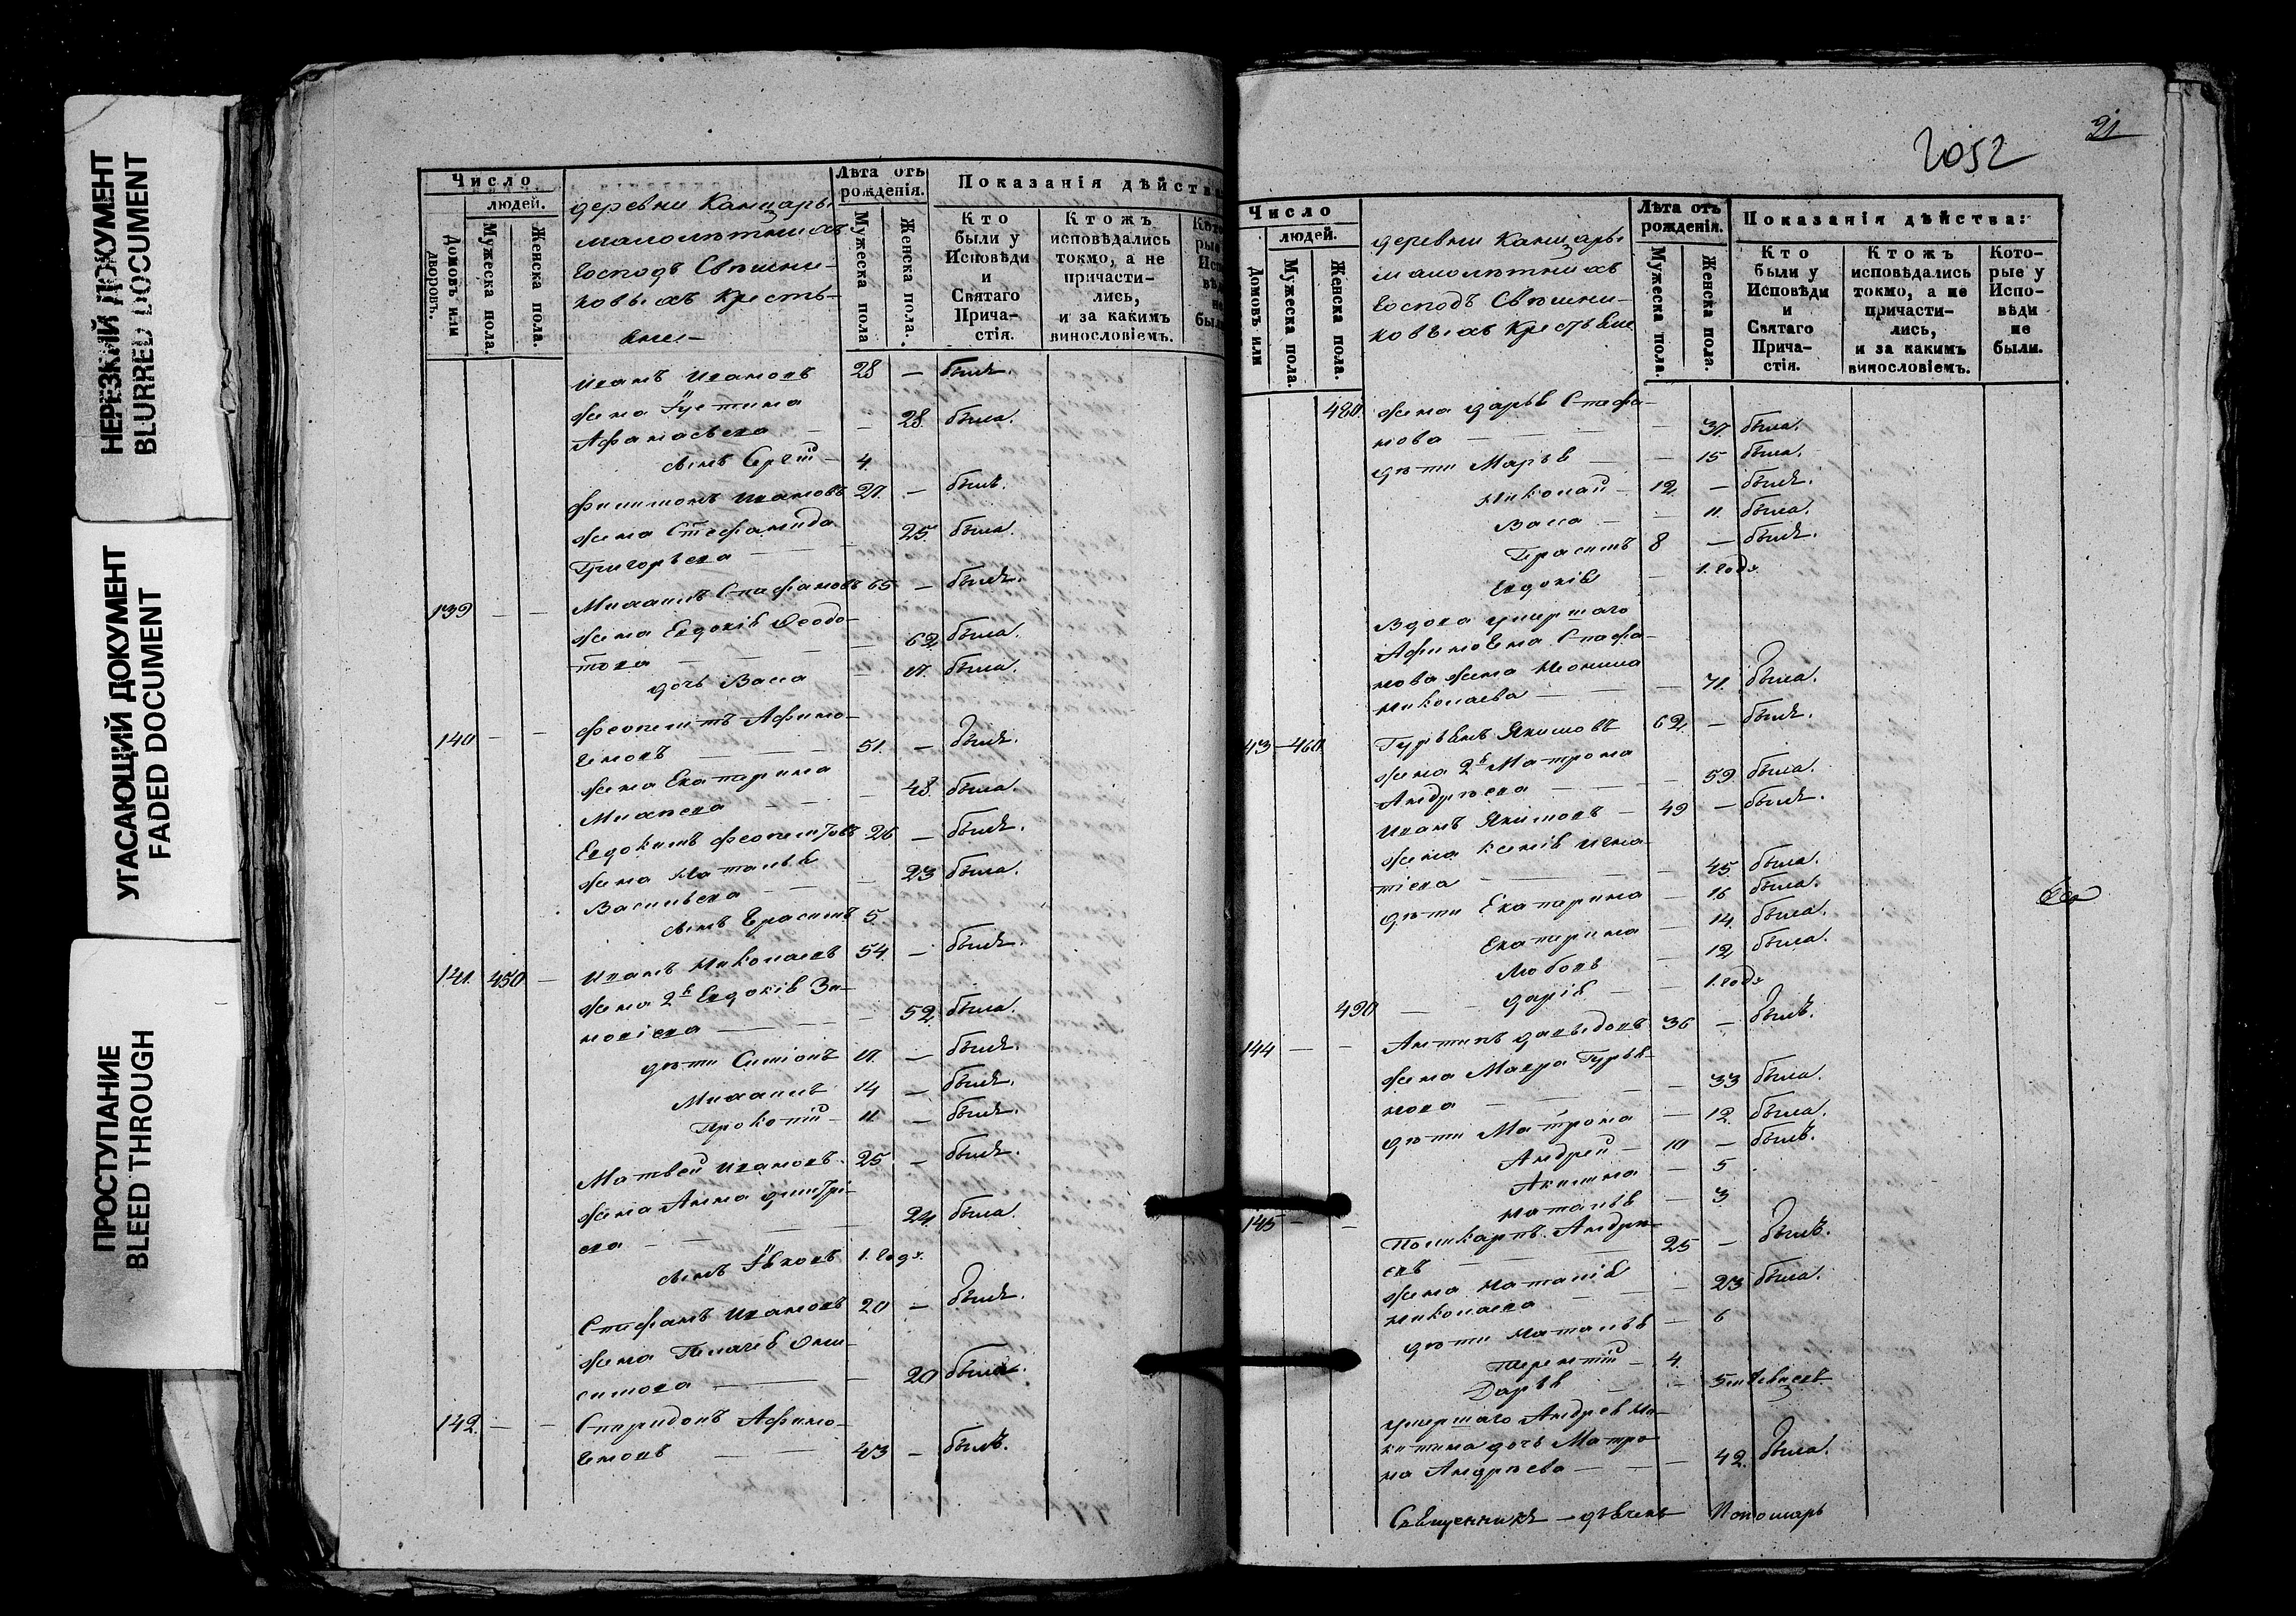 НЕРЕЗКИЙ ДОКУМЕНТ
BLURRED DOCUMENT
УГАСАЮЩИЙ ДОКУМЕНТ
FADED DOCUMENT
ПРОСТУПАНИЕ
BLEED THROUGH
Число
людей.
Домовъ или дворовъ.
Мужеска пола.
Женска пола.
деревни Канцары
малолѣтныхъ
Господъ Свѣшни-
ковыхъ кресть-
яне
Лѣта отъ рожденія.
Мужеска пола
Женска пола.
Показанія дѣйства
Кто были у Исповѣди и Святаго Прича-стія.
Ктожъ исповѣдались токмо, а не причасти-лись, и за какимъ винословіемъ.
Иванъ Ивановъ 28 — былъ.
жена Іустина
Афанасьева — — 28. была.
сынъ Сергій — 4.
Филимонъ Ивановъ 27. — былъ.
жена Стефанида
Григорьева — — 25. была.
139 — — Михаилъ Стефановъ 65 — былъ.
жена Евдокія Ѳеодо-
това — — 62 была.
дочь Васса — 17. была.
140 — — Феопемтъ Афино-
геновъ — 51. — былъ.
жена Екатерина
Михеева — — 48. была.
Евдокимъ Феопемтовъ 26 — былъ.
жена Наталья
Васильева — — 23 была.
сынъ Герасимъ 5.
141. 450 — Иванъ Николаевъ 54. — былъ.
жена 2я Евдокія Зи-
новіева — — 52 была.
дѣти Симіонъ 17. — былъ.
Михаилъ 14 — былъ.
Прокопій — 11 — былъ.
Матвей Ивановъ 25 — былъ.
жена Анна Димитрі-
ева — — 24. была.
сынъ Іяковъ 1. годъ.
Стефанъ Ивановъ 20 — былъ.
жена Пелагея Они-
симова — — 20 была.
142. — — Спиридонъ Афино-
геновъ — 43 — былъ.
2052
21
Число
людей.
Домовъ или
Мужеска пола.
Женска пола.
деревни Канцары
малолѣтныхъ
Господъ Свѣшни-
ковыхъ Крестьяне
Лѣта отъ рожденія.
Мужеска пола.
Женска пола.
Показанія дѣйства:
Кто были у Исповѣди и Святаго Прича-стія.
Ктожъ исповѣдались токмо, а не причасти-лись, и за какимъ винословіемъ.
Кото-рые у Испо-вѣди не были.
480. жена Дарья Стефа-
нова — — 37. была.
дѣти Марья — — 15 была.
Николай — 12 — былъ.
Васса — — 11. была.
Герасимъ 8 — былъ.
Евдокія — 1. годъ
Вдова умершаго
Афиногена Стефа-
нова жена Неонила
Николаева — — 71. была.
43 — 460. Гурьянъ Якимовъ 62. — былъ.
жена 2я Матрона
Андреева — — 59. была.
Иванъ Якимовъ — 49 — былъ.
жена Ксенія Игна-
тіева — — 45. была.
дѣти Екатерина — 16 была.
Екатерина — 14. была.
Любовь — 12 была.
490 Дарія — — 1. годъ
144 — — Антипъ Давыдовъ 36 — былъ.
жена Мавра Гурья-
нова — — 33 была.
дѣти Матрона — 12. была.
Андрей — 10 — былъ.
Акилина — 5
Наталья — 3
145 — — Поликарпъ Андре-
евъ — 25 — былъ.
жена Наталія
Николаева — — 23 была.
дѣти Наталья — 6
Терентій — 4.
Дарья — — 5 мѣсяцев.
умершаго Андрея Ни-
китина дочь Матро-
на Андреева — — 42. была.
Священникъ — дьячекъ Пономарь